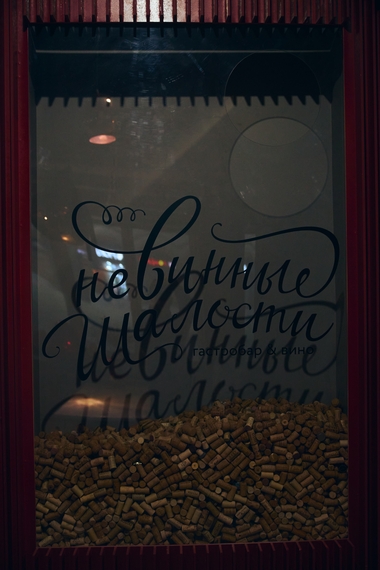 невинные
шалости
гастробар & вино